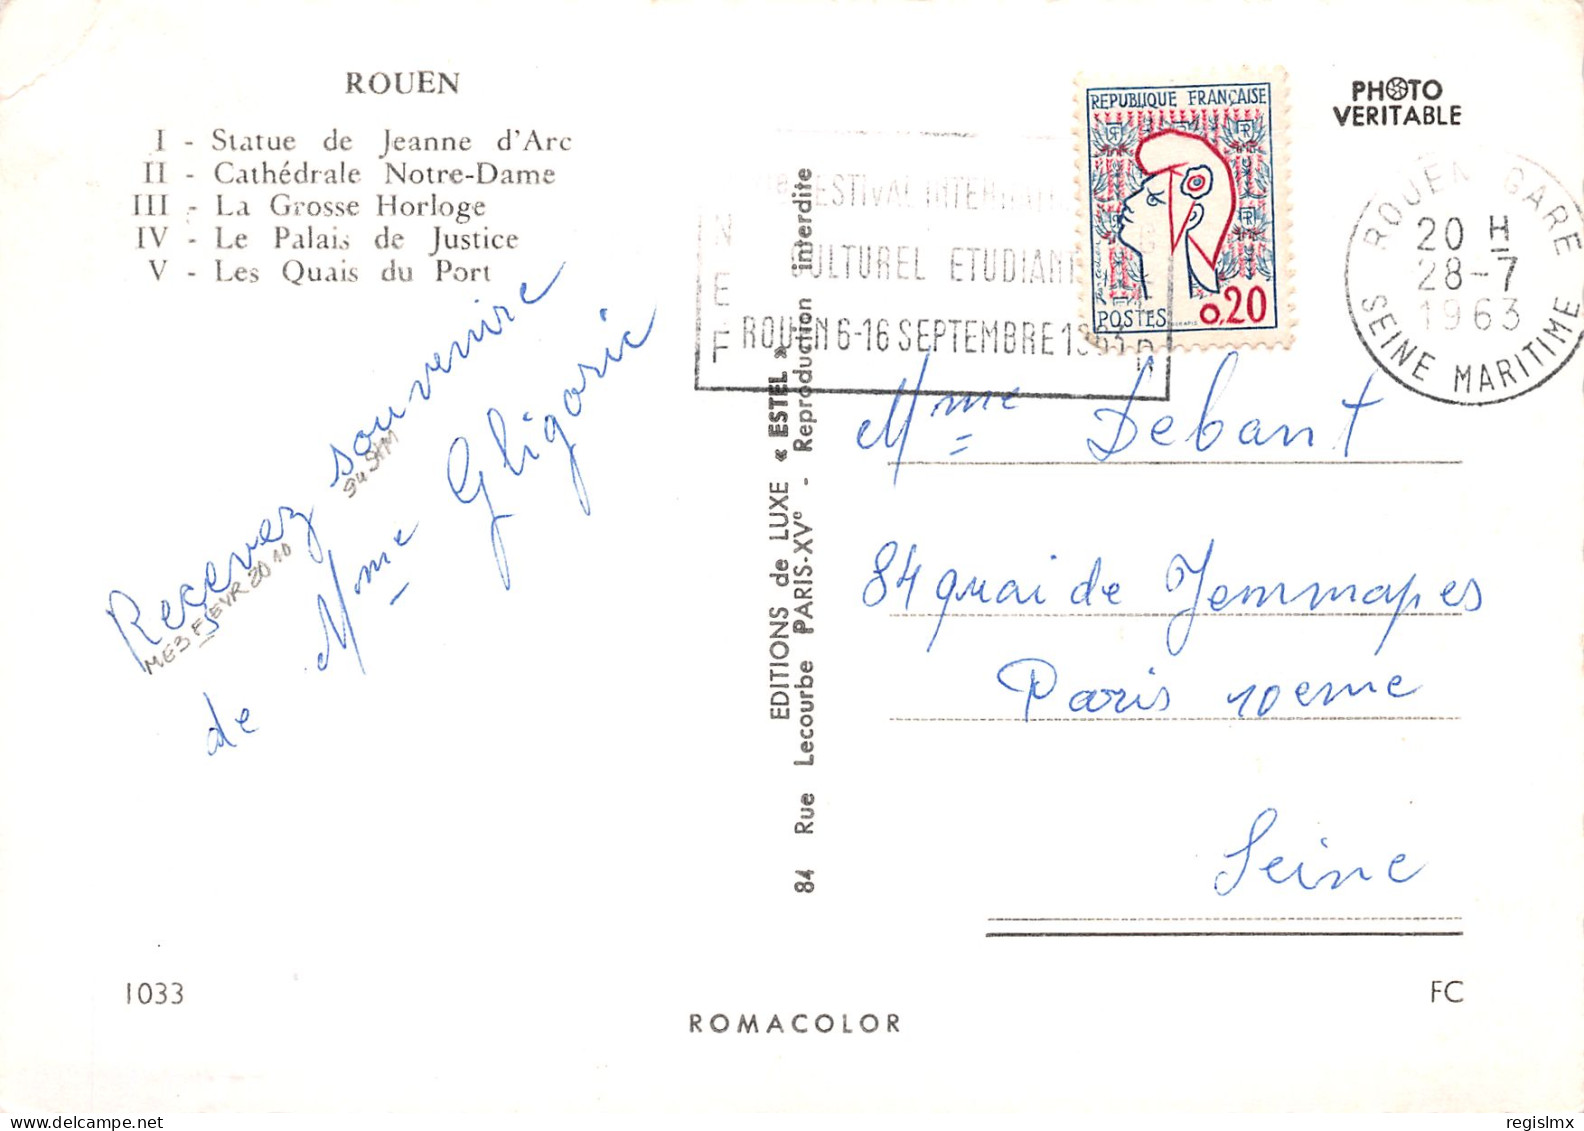 ROUEN
I - Statue de Jeanne d'Arc
II - Cathédrale Notre-Dame
III - La Grosse Horloge
IV - Le Palais de Justice
V - Les Quais du Port
Recevez souvenire
de Mme Gligoric
ME3 FEVR 2010
94 SHM
1033
ROMACOLOR
EDITIONS de LUXE « ESTEL »
84 Rue Lecourbe PARIS-XVe - Reproduction interdite
FESTIVAL INTERNAT
CULTUREL ETUDIANT
ROUEN 6-16 SEPTEMBRE 1963
N
E
F
REPUBLIQUE FRANÇAISE
POSTES 0,20
PHOTO
VERITABLE
ROUEN GARE
20 H
28-7
1963
SEINE MARITIME
Mme Debant
84 quai de Jemmapes
Paris 10eme
Seine
FC
regislmx